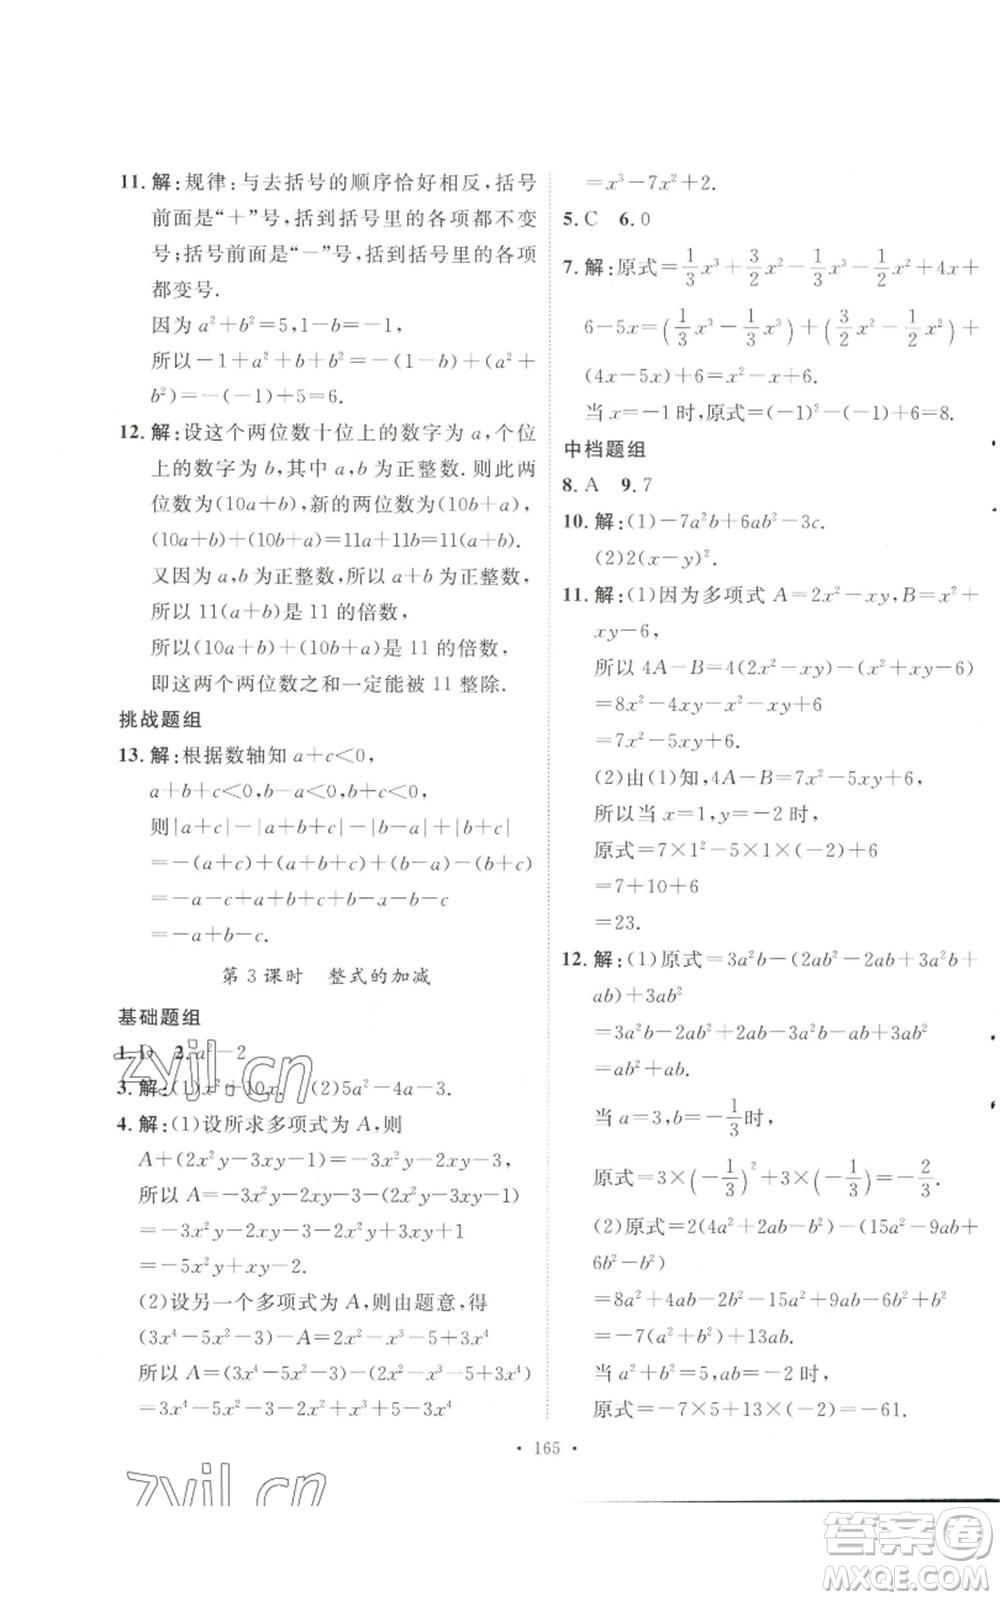 11. 解:规律:与去括号的顺序恰好相反,括号
前面是“+”号,括到括号里的各项都不变
号;括号前面是“－”号,括到括号里的各项
都变号.
因为 a²+b²=5,1-b=-1,
所以-1+a²+b²=-(1-b)+(a²+
b²)=-(-1)+5=6.
12. 解:设这个两位数十位上的数字为 a,个位
上的数字为 b,其中 a,b 为正整数. 则此两
位数为(10a+b),新的两位数为(10b+a),
(10a+b)+(10b+a)=11a+11b=11(a+b).
又因为 a,b 为正整数,所以 a+b 为正整数,
所以 11(a+b)是 11 的倍数,
所以(10a+b)+(10b+a)是 11 的倍数,
即这两个两位数之和一定能被 11 整除.
挑战题组
13. 解:根据数轴知 a+c<0,
a+b+c<0,a-b<0,b+c<0,
则|a+c|-|a+b+c|-|a-b|+|b+c|
=-(a+c)+(a+b+c)+(a-b)-(b+c)
=-a-c+a+b+c+a-b-b-c
=a-b-c.
第 3 课时 整式的加减
基础题组
1. D 2. a²-2
3. 解:(1)x²+10x. (2)5a²-4a-3.
4. 解:(1)设所求多项式为 A,则
A+(2x²y-3xy-1)=-3x²y-2xy-3,
所以 A=-3x²y-2xy-3-(2x²y-3xy-1)
=-3x²y-2xy-3-2x²y+3xy+1
=-5x²y+xy-2.
(2)设另一个多项式为 A,则由题意,得
(3x⁴-5x²-3)-A=-2x²-x³-5+3x⁴
所以 A=(3x⁴-5x²-3)-(-2x²-x³-5+3x⁴)
=3x⁴-5x²-3+2x²+x³+5-3x⁴
=x³-7x²+2.
5. C 6. 0
7. 解:原式=1/3x³+3/2x²-1/3x³-1/2x²+4x+
6-5x=(1/3x³-1/3x³)+(3/2x²-1/2x²)+
(4x-5x)+6=x²-x+6.
当 x=-1 时,原式=(-1)²-(-1)+6=8.
中档题组
8. A 9. 7
10. 解:(1)-7a²b+6ab²-3c.
(2)2(x-y)².
11. 解:(1)因为多项式 A=2x²-xy,B=x²+
xy-6,
所以 4A-B=4(2x²-xy)-(x²+xy-6)
=8x²-4xy-x²-xy+6
=7x²-5xy+6.
(2)由(1)知,4A-B=7x²-5xy+6,
所以当 x=1,y=-2 时,
原式=7×1²-5×1×(-2)+6
=7+10+6
=23.
12. 解:(1)原式=3a²b-(2ab²-2ab+3a²b+
ab)+3ab²
=3a²b-2ab²+2ab-3a²b-ab+3ab²
=ab²+ab.
当 a=3,b=-1/3时,
原式=3×(-1/3)²+3×(-1/3)=-2/3.
(2)原式=2(4a²+2ab-b²)-(15a²-9ab+
6b²-b²)
=8a²+4ab-2b²-15a²+9ab-6b²+b²
=-7(a²+b²)+13ab.
当 a²+b²=5,ab=-2 时,
原式=-7×5+13×(-2)=-61.
• 165 •
zyjl.cn
zyjl.cn
答案卷
MXQE.COM